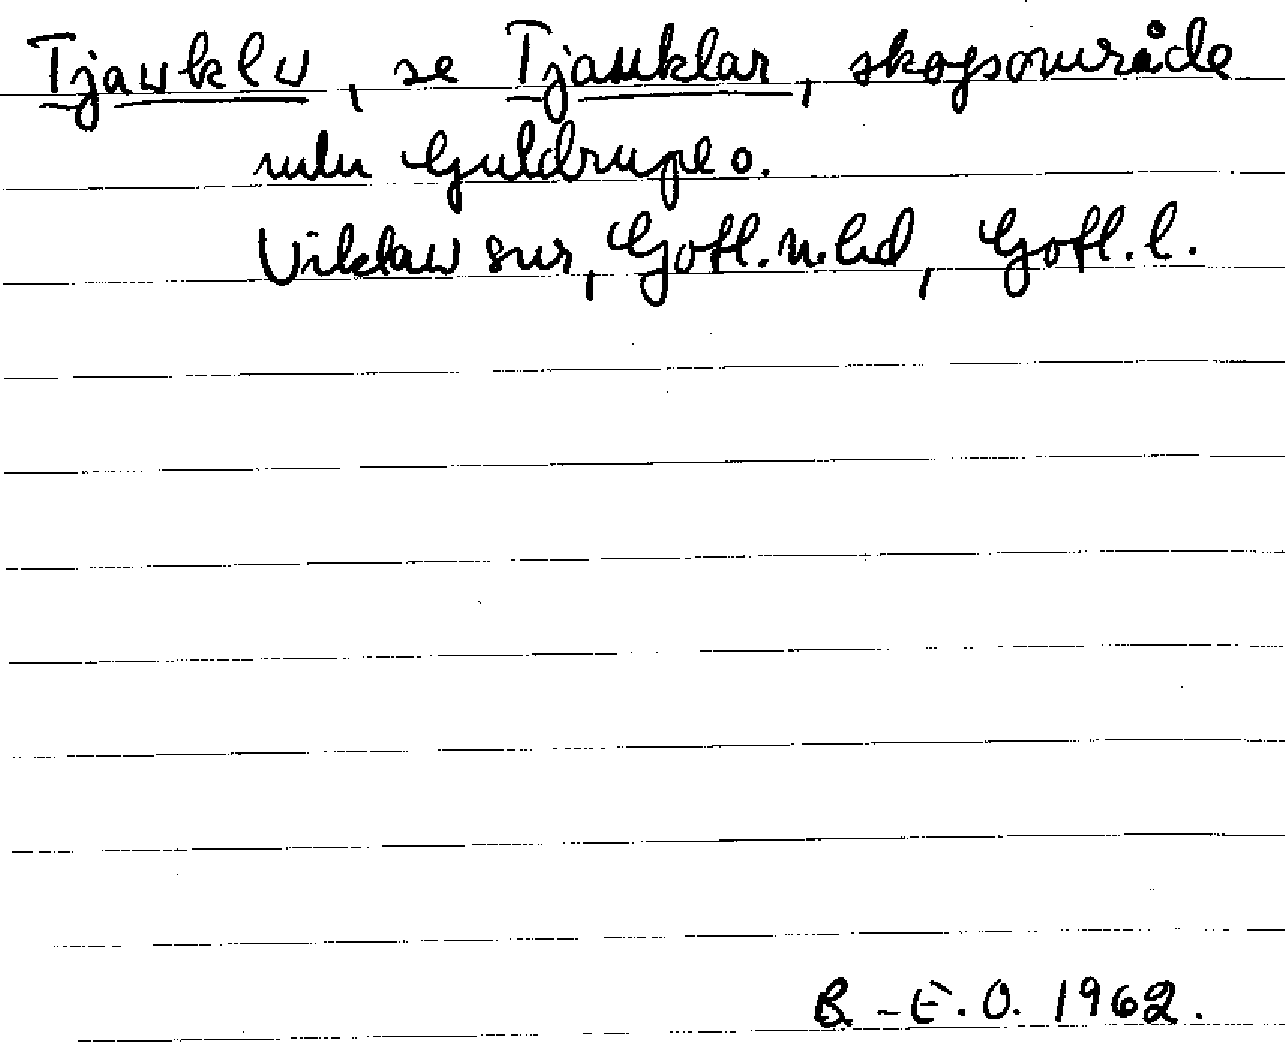 Tjauklu, se Tjauklar, skogsområde
mln Guldrupe o.
Viklau snr, Gotl. n. hd, Gotl. l.
B.-E. O. 1962.